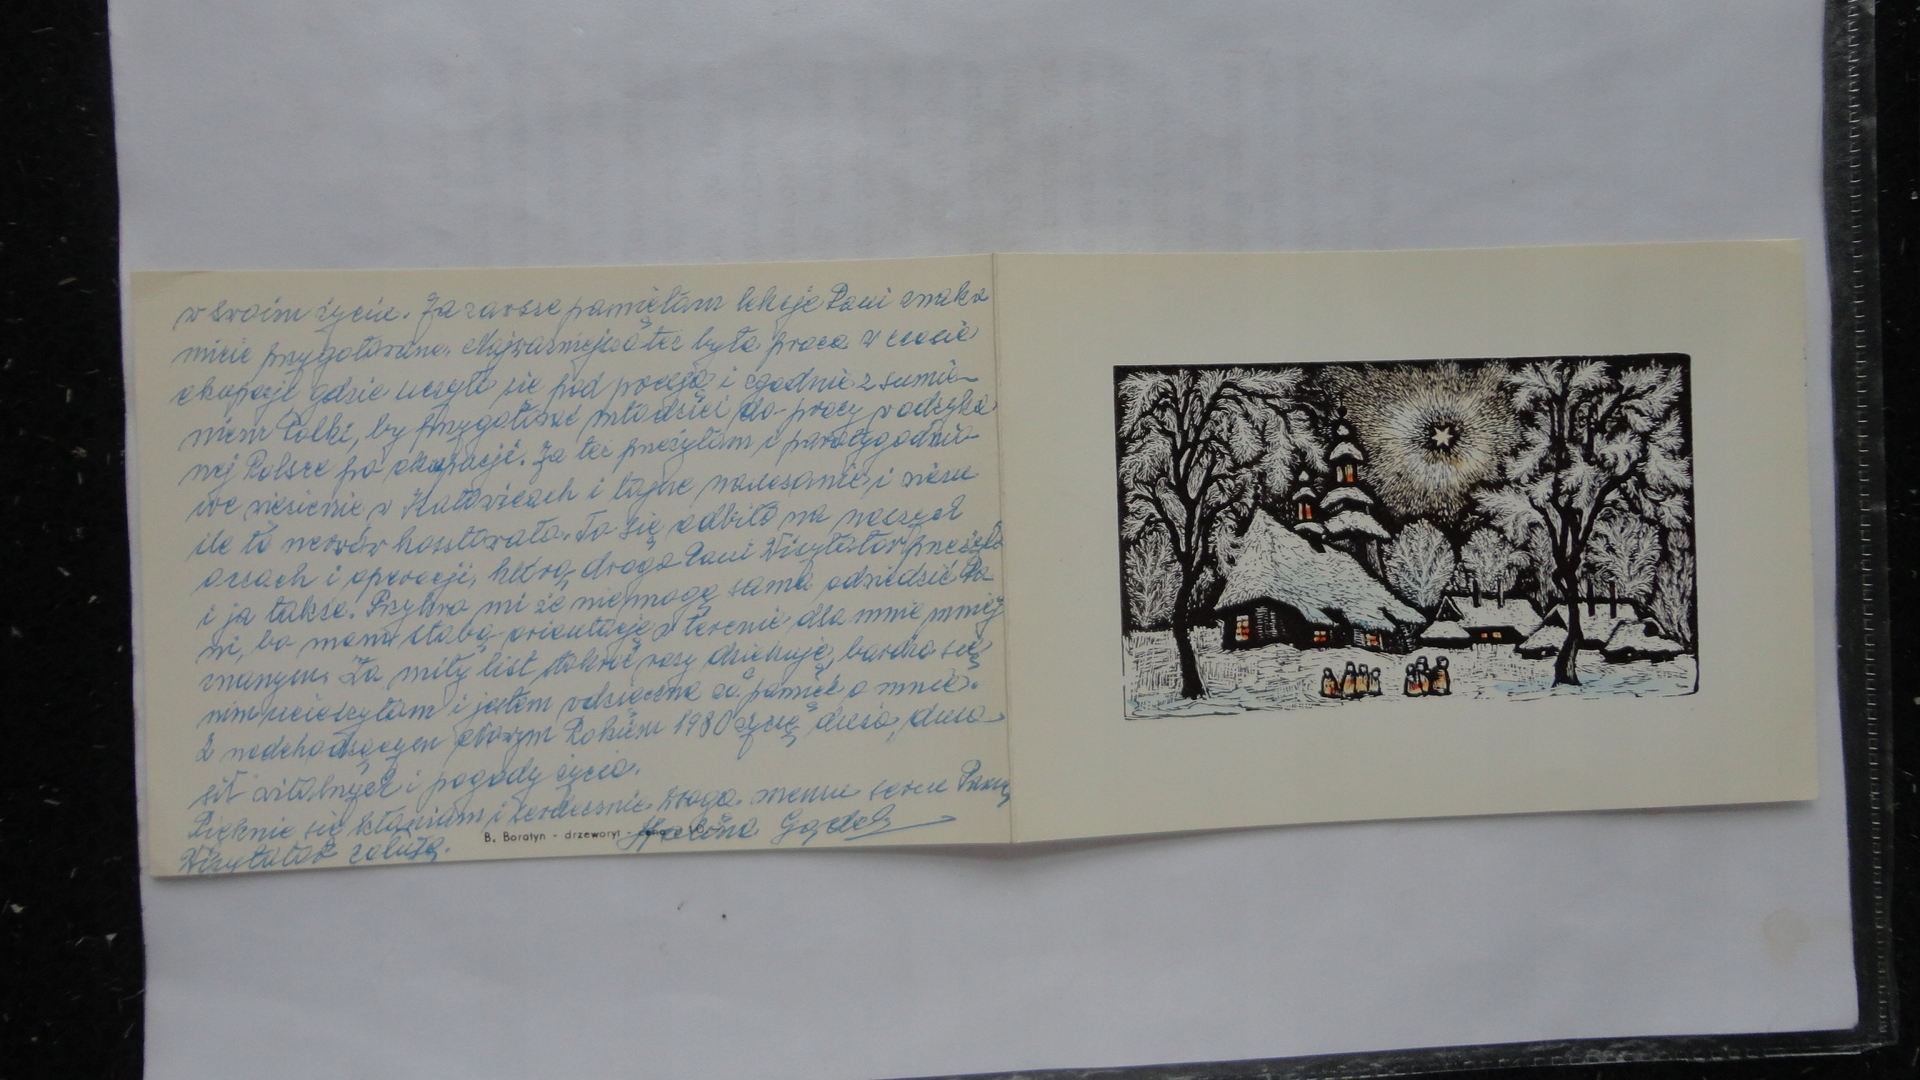 w swoim życiu. Ja zawsze pamiętam lekcje Pani znako
micie przygotowane. Najważniejszą też była praca w czasie
okupacji gdzie uczyli się pod presją i zgodnie z sumie-
niem Polki, by przygotować młodzież do pracy w odzyska
nej Polsce po okupacji. Ja też przeżyłam i paratygodnio-
we więzienie w Katowicach i tajne nauczanie i wiem
ile to nerwów kosztowało. To się odbiło na naszych
oczach i operacji, którą droga Pani Wizytator przeżyła
i ja także. Przykro mi że nie mogę sama odwiedzić Pa
ni, bo mam słabą orientację w terenie dla mnie mniej
znanym. Za miły list dziękuję, bardzo się
nim ucieszyłam i jestem wdzięczna za pamięć o mnie.
Z nadchodzącym Nowym Rokiem 1980 życzę dużo, dużo
sił witalnych i pogody życia.
Pięknie się kłaniam i serdecznie droga memu sercu Panią
Wizytator całuję.
B. Boratyn - drzeworyt -